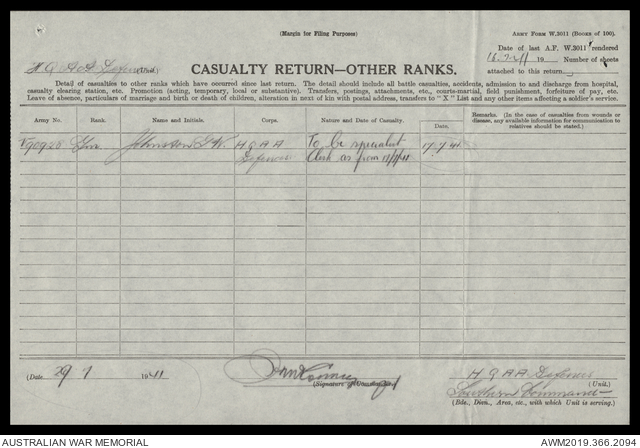 (Margin for Filing Purposes)
ARMY FORM W.3011 (BOOKS OF 100).
Date of last A.F. W.3011 rendered
H.Q. A.A. Defences (Unit)
16.7.41 19 Number of sheets
CASUALTY RETURN—OTHER RANKS.
attached to this return
Detail of casualties to other ranks which have occurred since last return. The detail should include all battle casualties, accidents, admission to and discharge from hospital,
casualty clearing station, etc. Promotion (acting, temporary, local or substantive). Transfers, postings, attachments, etc., courts-martial, field punishment, forfeiture of pay, etc.
Leave of absence, particulars of marriage and birth or death of children, alteration in next of kin with postal address, transfers to "X" List and any other items affecting a soldier's service.
Army No. Rank. Name and Initials. Corps. Nature and Date of Casualty. Date. Remarks. (In the case of casualties from wounds or
disease, any available information for communication to
relatives should be stated.)
V90928 Gnr. Johnston G.W. H Q A A To be specialist 17.7.41
Defences Clerk as from 17/7/41
(Date 29 7 1941
(Signature of
H Q A A Defences
(Unit.)
Southern Command
(Bde., Divn., Area, etc., with which Unit is serving.)
AUSTRALIAN WAR MEMORIAL
AWM2019.366.2094